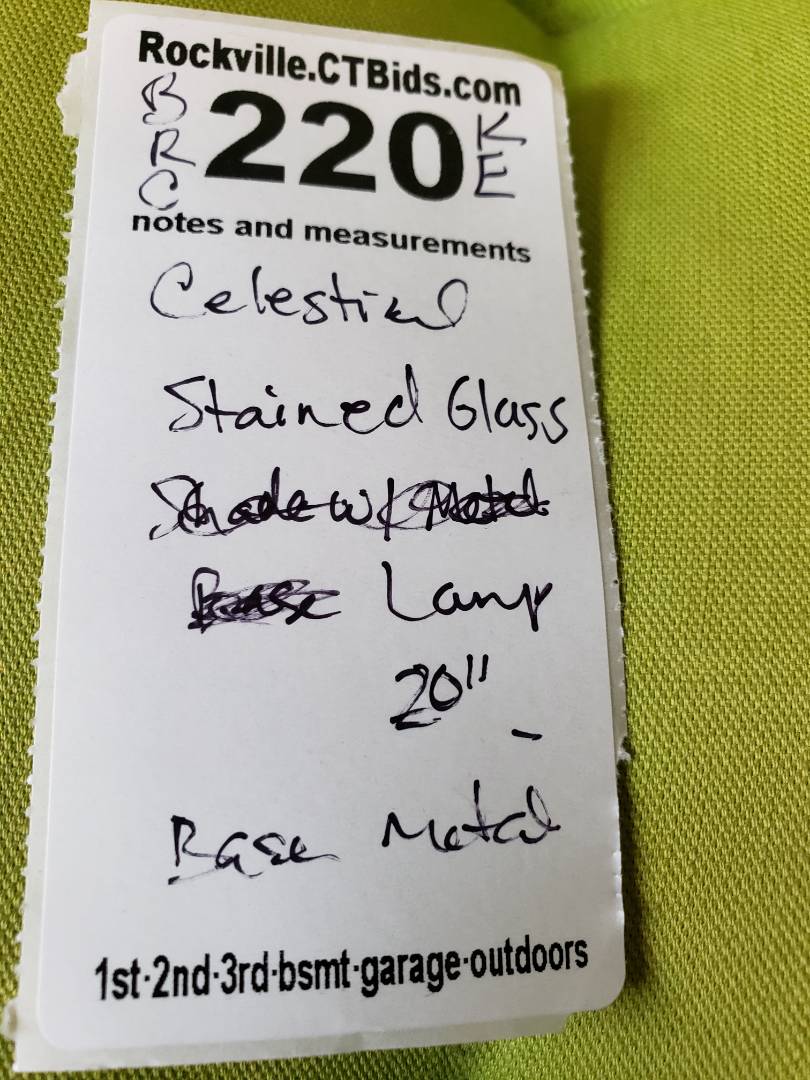 Rockville.CTBids.com
BRC 220 KE
notes and measurements
Celestial
Stained Glass
Shade w/ Metal
Base Lamp
20"
Base Metal
1st·2nd·3rd·bsmt·garage·outdoors